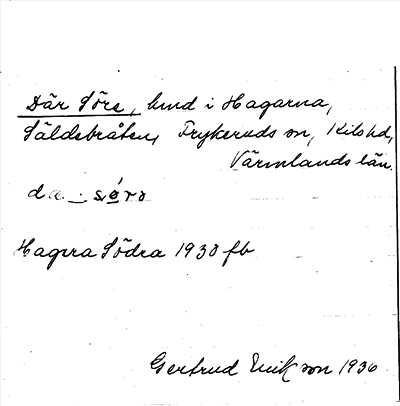 Där Söre, hmd i Hagarna,
Säldebråten, Frykeruds sn, Kils hd,
Värmlands län.
Hagara Södra 1930 fb
Gertrud Erikson 1936